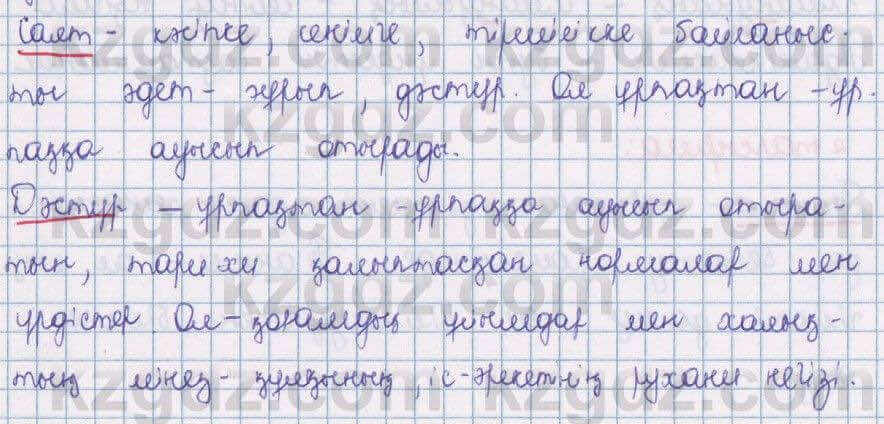 Салт - кәсіпке, сенімге, тіршілікке байланыс-
ты әдет - ғұрып, дәстүр. Ол ұрпақтан - ұр-
паққа ауысып отырады.
Дәстүр - ұрпақтан - ұрпаққа ауысып отыра-
тын, тарихи қалыптасқан нормалар мен
үрдістер. Ол - қоғамдық ұйымдар мен халық-
тың мінез - құлқының, іс-әрекетінің рухани негізі.
kzgdz.com